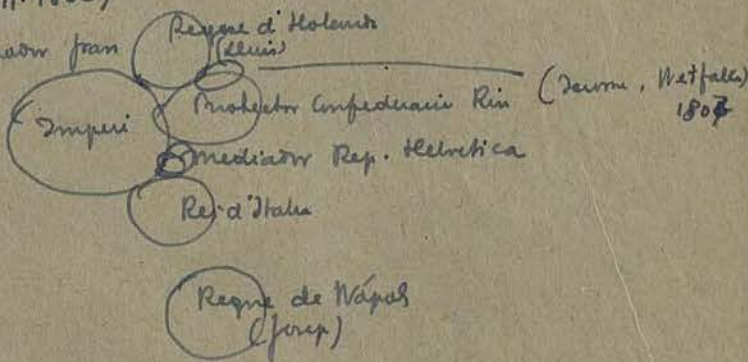 Regne d'Holanda
(Lluís)
Imperi
Protector Confederació Rin (Jerome, Wetfalia)
1807
Mediador Rep. Helvetica
Rei d'Italia
Regne de Nápols
(Josep)